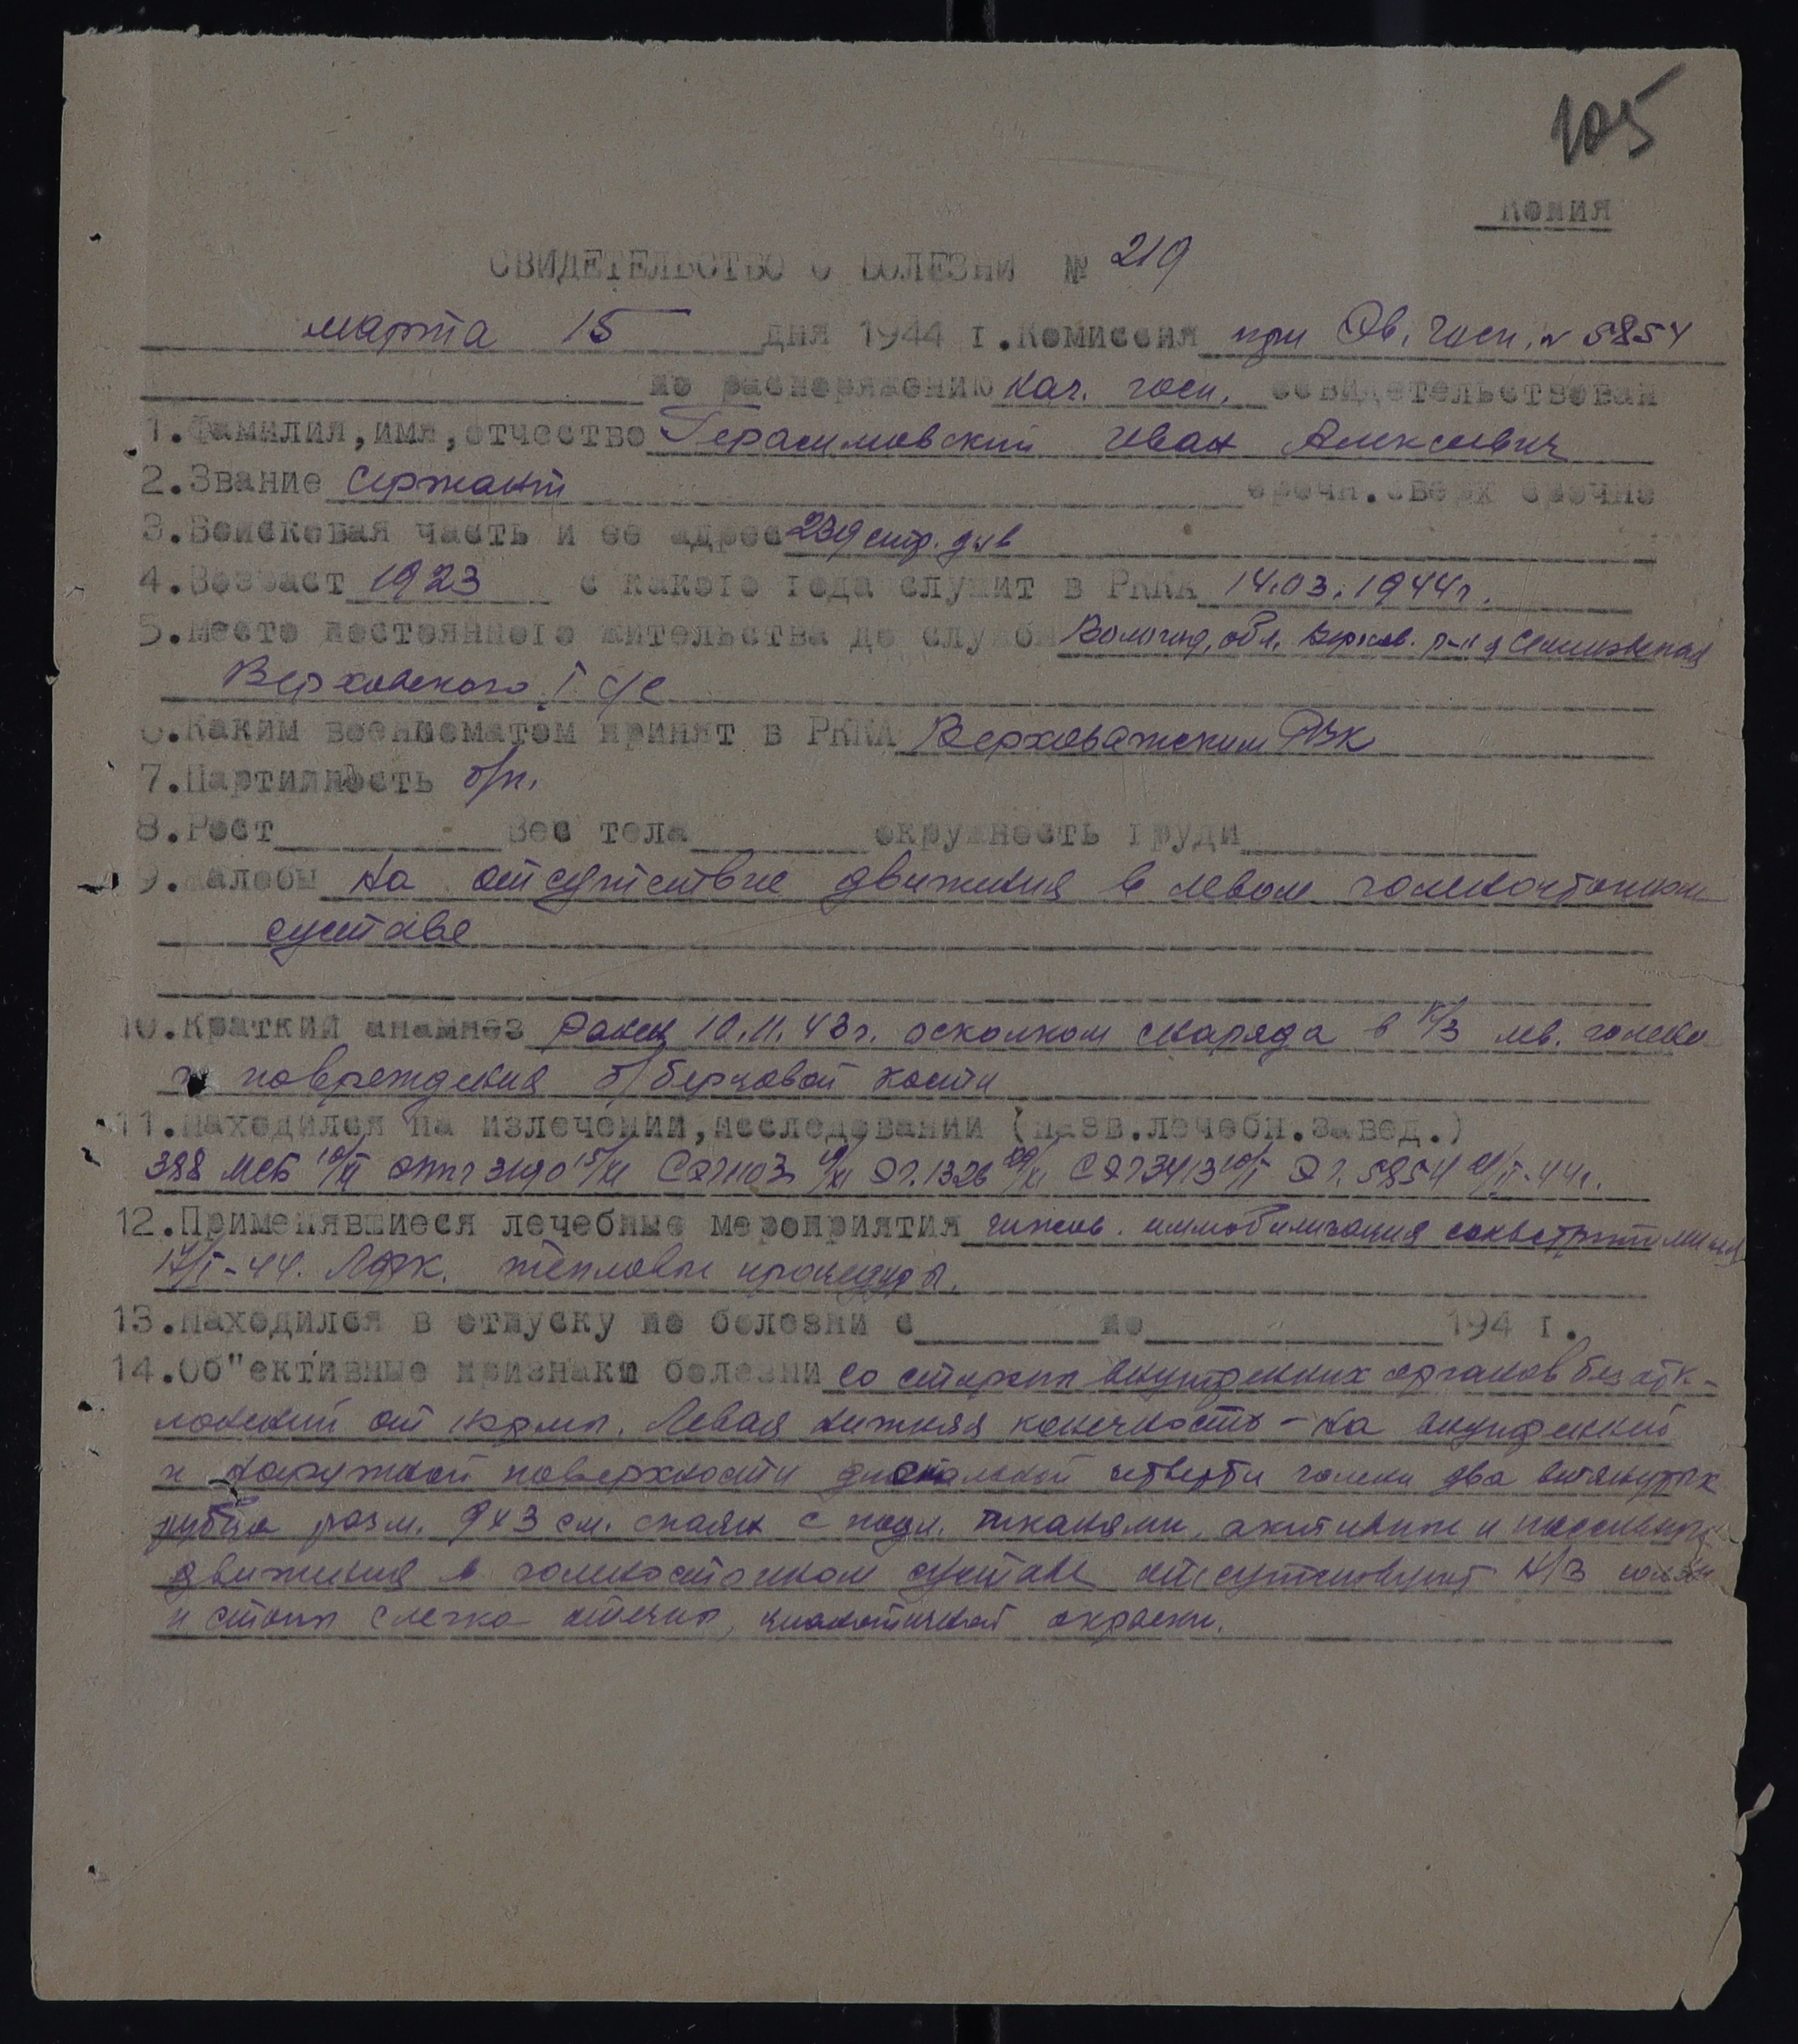 105
Копия
СВИДЕТЕЛЬСТВО О БОЛЕЗНИ № 219
марта 15 дня 1944 г. Комиссия при Эв. Госп. № 5854
по распоряжению Нач. госп. освидетельствован
1. Фамилия, имя, отчество Герасимовский Иван Алексеевич
2. Звание Сержант срочн. сверх срочно
3. Войсковая часть и ее адрес 239 стр. див
4. Возраст 1923 с какого года служит в РККА 14.03.1944г.
5. Место постоянного жительства до службы Вологод. обл. Верхов. р-н д
Верховского I с/с
6. Каким военкоматом принят в РККА Верховажским РВК
7. Партийность б/п.
8. Рост Вес тела окружность груди
9. Жалобы На отсутствие движения в левом голеностопном
суставе
10. Краткий анамнез Ранен 10.11.43г. осколком снаряда в н/3 лев. голени
повреждения б/берцовой кости
11. Находился на излечении, исследовании (назв. лечебн. завед.)
388 МСБ 10/XI 3190 15/XI 1103 1326 /XI 3413 10/I ЭГ. 5854 /II-44г.
12. Применявшиеся лечебные мероприятия гипсов. иммобилизация
17/I-44. ЛФК. тепловые процедуры.
13. Находился в отпуску по болезни с по 194 г.
14. Об"ективные признаки болезни со стороны внутренних органов без отк-
лонений от нормы. Левая нижняя конечность - на внутренней
и наружной поверхности дистальной четверти голени два втянутых
рубца разм. 9х3 см. спаян с подл. тканями, активные и пассивные
движения в голеностопном суставе отсутствуют Н/3 голени
и стопы слегка отечны, цианотичной окраски.